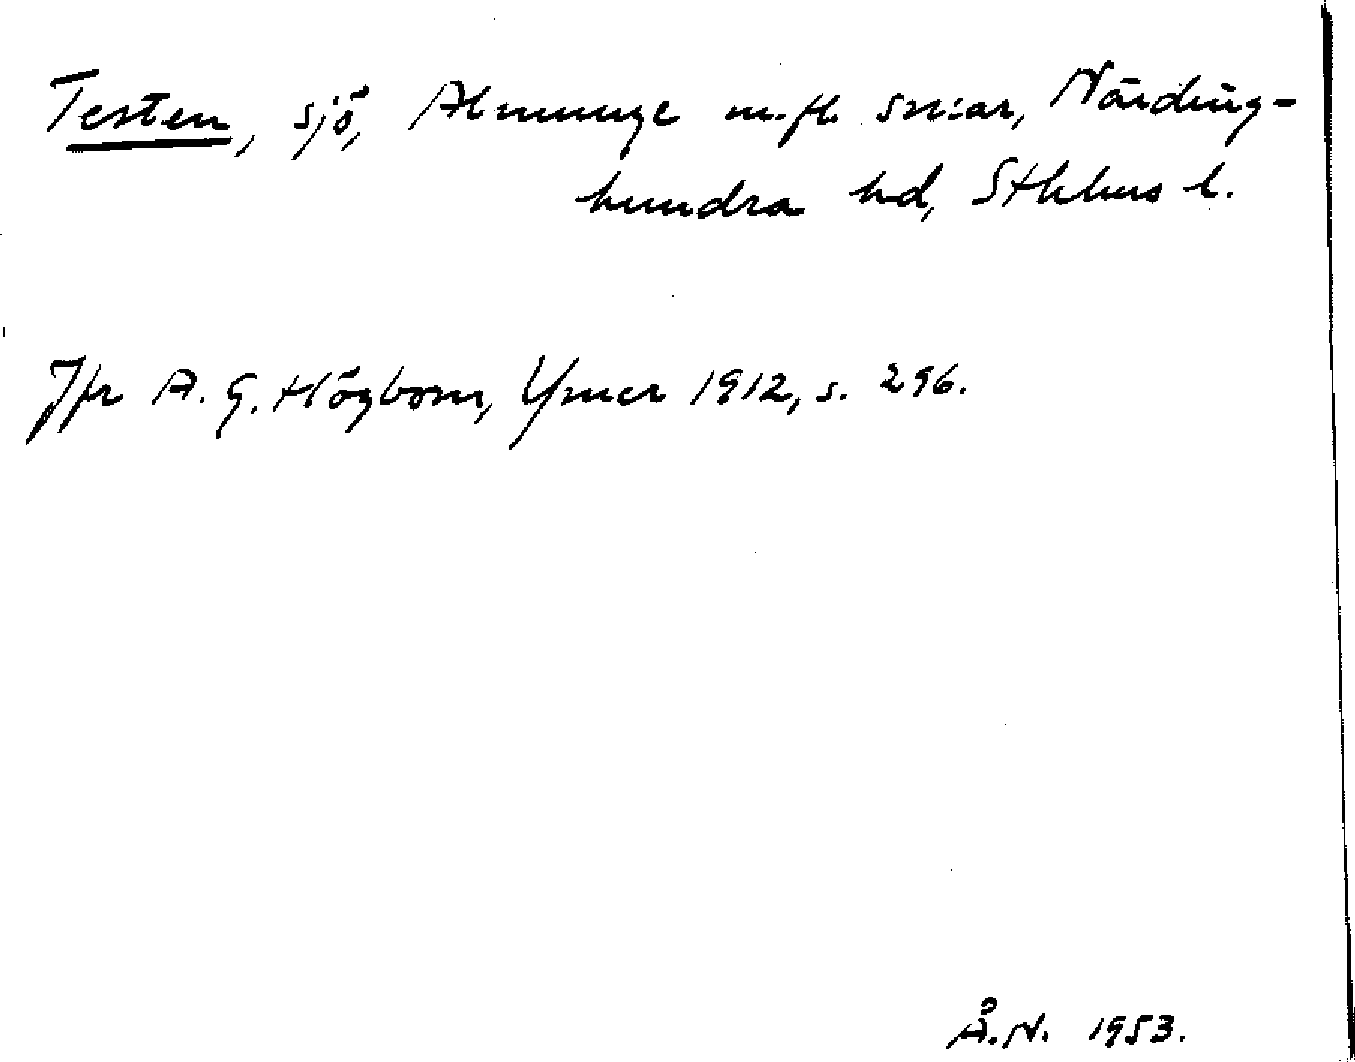 Testen, sjö, Almunge m.fl. sn:ar, Närding-
hundra hd, Sthlms l.
Jfr A. G. Högbom, Ymer 1912, s. 296.
Å.N. 1953.